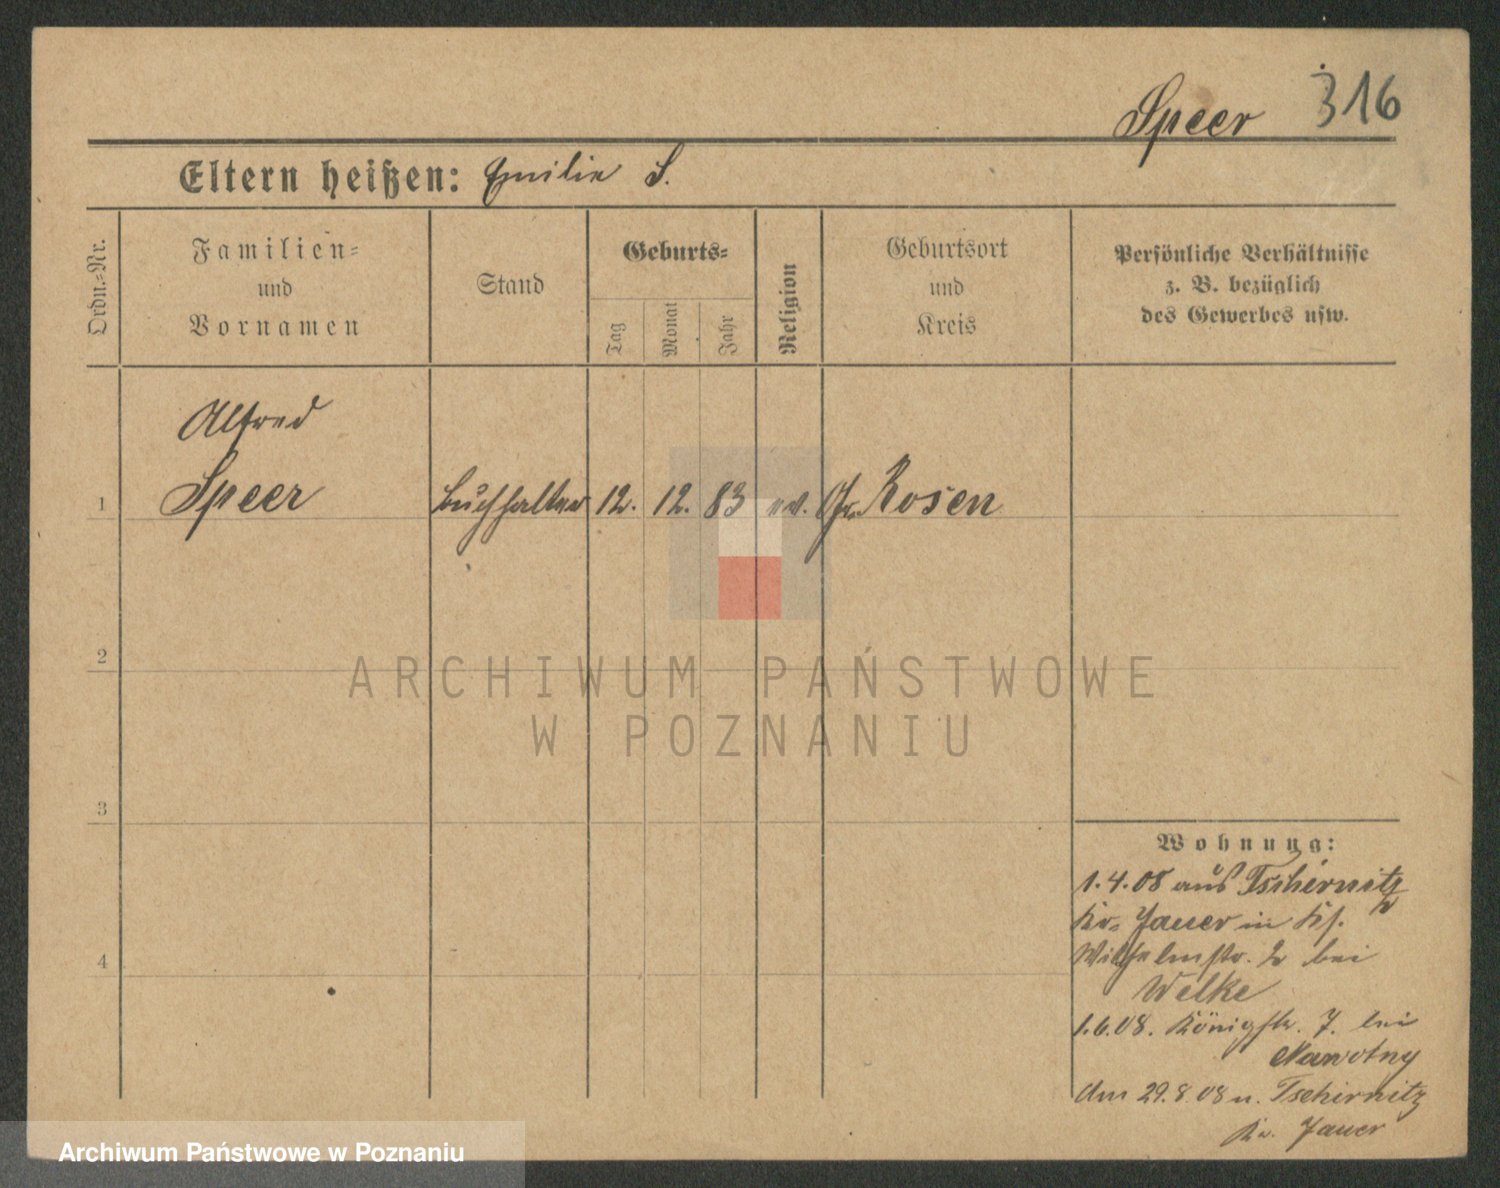 Speer 316
Eltern heißen: Emilie S.
Ordn.=Nr.
Familien=
und
Vornamen
Stand
Geburts=
Tag
Monat
Jahr
Religion
Geburtsort
und
Kreis
Persönliche Verhältnisse
z. B. bezüglich
des Gewerbes usw.
Alfred
1 Speer Buchhalter 12. 12. 83 ev. Gr. Rosen
2
ARCHIWUM PAŃSTWOWE
W POZNANIU
3
Wohnung:
1.4.08 aus Tschirnitz
Kr. Jauer in
4
Wilhelmstr. 2 bei
Welke
1.6.08. Königstr. 7. bei
Nawotny
Am 29.8.08 n. Tschirnitz
Kr. Jauer
Archiwum Państwowe w Poznaniu